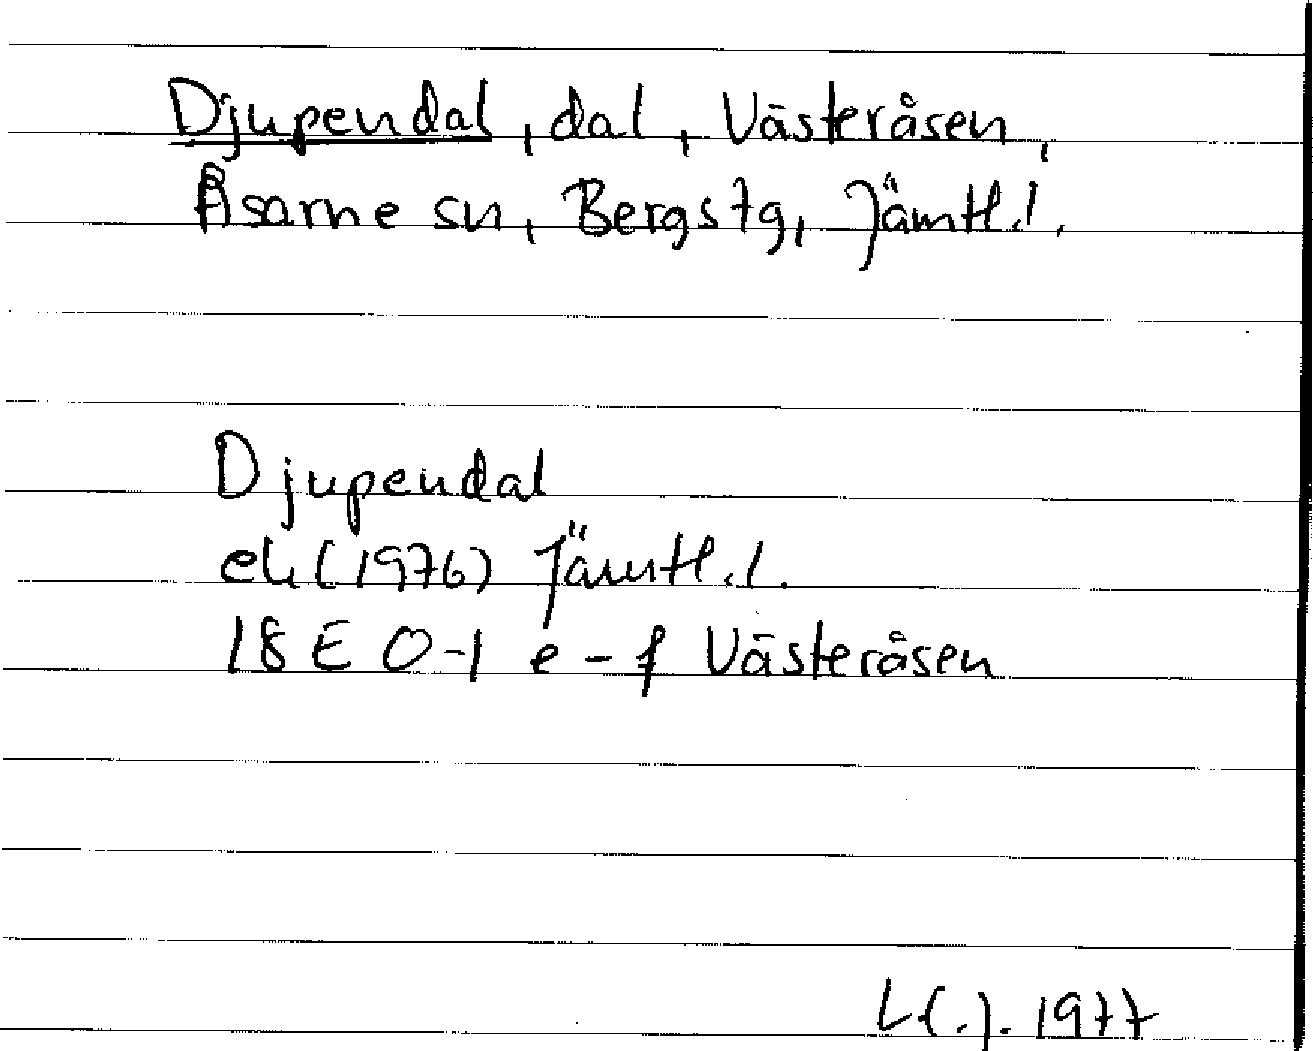 Djupendal, dal, Västeråsen,
Åsarne sn, Bergs tg, Jämtl. l.
Djupendal
ek (1976) Jämtl. l.
18 E 0-1 e-f Västeråsen
1977